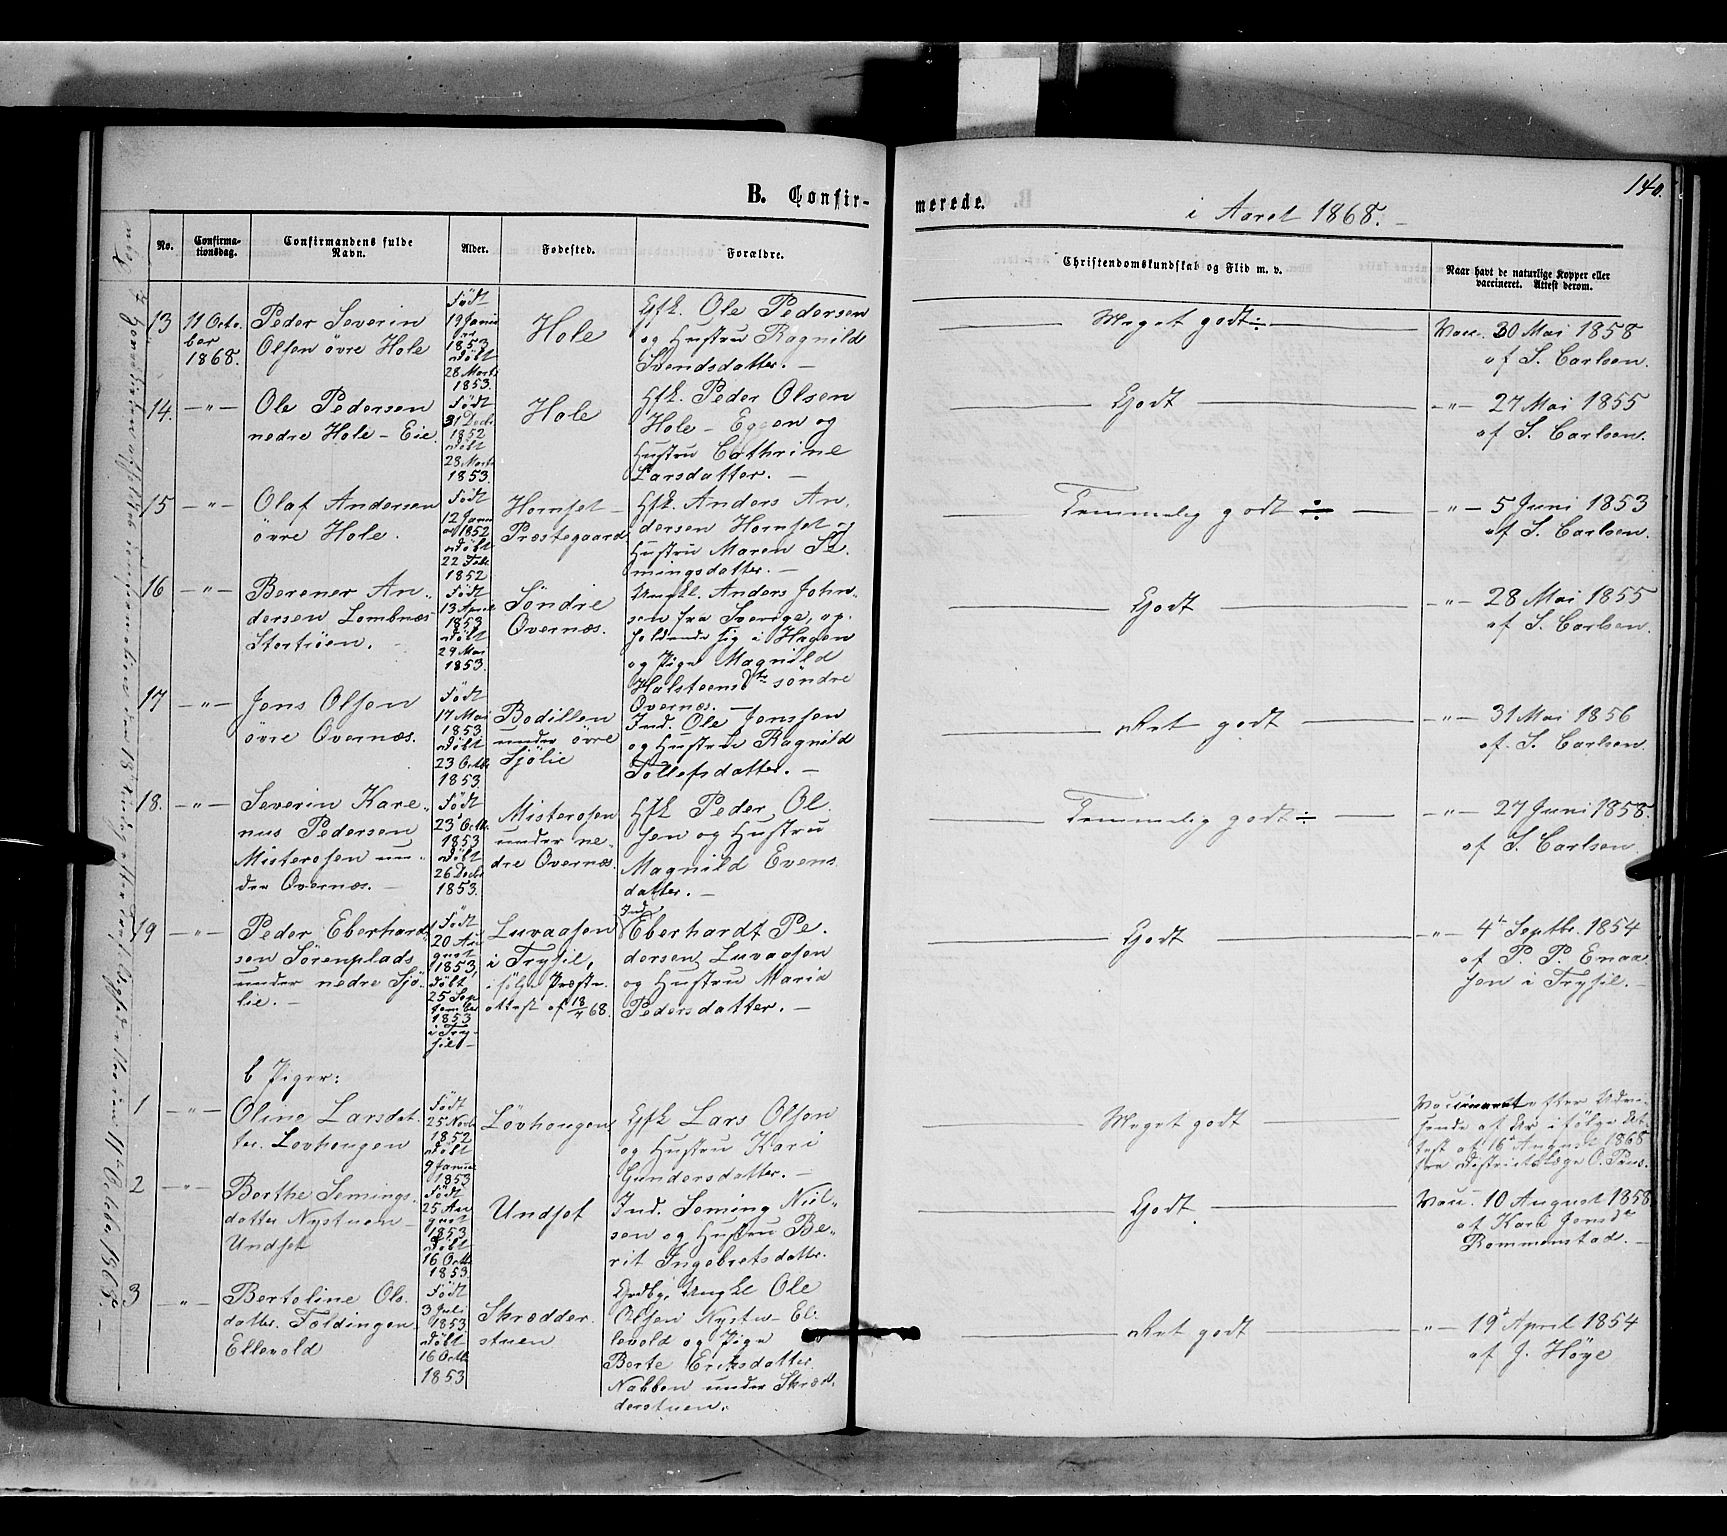 B. Confir-
merede.
i Aaret 1868.
140.
No.
Confirma-
tionsdag.
Confirmandens fulde
Navn.
Alder.
Fødested.
Forældre.
Christendomskundskab og Flid m. v.
Naar havt de naturlige Kopper eller
vaccineret. Attest derom.
13
11 Octo-
ber
1868.
Peder Severin
Olsen övre Hole
Født
19 Janu
ar
1853
døbt
28 Marts
1853.
Hole
Gfk. Ole Pedersen
og Hustru Ragnild
Svendsdatter. —
Meget godt ÷
Vacc. 30 Mai 1858
af S. Carlsen.
14.
— " —
Ole Pedersen
nedre Hole - Eie.
Født
31 Decbr
1852
døbt
28 Marts
1853.
Hole
Gfk. Peder Olsen
Hole - Eggen og
Hustru Cathrine
Larsdatter. —
Godt
— " — 27 Mai 1855
af S. Carlsen.
15
— " —
Olaf Andersen
övre Hole.
Født
12 Janu
ar 1852
døbt
22 Febr
1852
Hornset -
Præstegaard
Gfk. Anders An-
dersen Hornset og
Hustru Maren Se-
mingsdatter. —
Temmelig godt ÷
— " — 5 Juni 1853
af S. Carlsen.
16
— " —
Berener An-
dersen Lombnæs
Stortröen.
Født
13 April
1853
døbt
29 Mai
1853.
Söndre
Overnæs.
Ungkl. Anders John-
sen fra Sverige, op-
holdende sig i Hagen
og Pige Magnild
Halsteensdtr söndre
Overnæs. —
Godt
— " — 28 Mai 1855
af S. Carlsen.
17
— " —
Jens Olsen
övre Overnæs.
Født
17 Mai
1853
døbt
23 Octbr
1853.
Bodillen
under övre
Sjölie
Ind. Ole Jenssen
og Hustru Ragnild
Tollefsdatter. —
Ret godt
— " — 31 Mai 1856
af S. Carlsen.
18.
— " —
Severin Kare-
nus Pedersen
Misterosen un-
der Overnæs. —
Født
23 Octbr
1853
døbt
26 Decbr
1853.
Misterosen
under ne-
dre Overnæs.
Gfk Peder Ol-
sen og Hustru
Magnild Evens
datter. —
Temmelig godt ÷
— " — 27 Juni 1858.
af S. Carlsen.
19
— " —
Peder Eberhard-
sen Sörenplads
under nedre Sjö-
lie. —
Født
20 Au
gust
1853,
døbt
25 Sep
tember
1853
i Try-
sil —
Luvaasen
i Trysil,
ifølge Præste-
attest af 18/4 68.
Ind.
Eberhardt Pe-
dersen Luvaasen
og Hustru Maria
Pedersdatter. —
Godt
— " — 4 Septbr. 1854
af P. P. Enaa-
sen i Trysil. —
b Piger:
1
— " —
Oline Larsdat-
ter. Lovhougen
Født
25 Novbr
1852
døbt
9 Januar
1853
Lövhougen
Gfk Lars Olsen
og Hustru Kari
Gundersdatter. —
Meget godt
Vaccineret efter Udse-
ende af Ar ifølge At-
test af 16 August 1868
fra Districtslæge O.
2
— " —
Berthe Semings-
datter Nystuen -
Undset
Født
25 Au
gust
1853
døbt
16 Octbr
1853
Undset
Ind. Seming Niel-
sen og Hustru Be-
rit Ingebretsdatter.
Godt.
Vacc. 10 August 1858
af Kari Jensdr
Rommenstad. —
3
— " —
Bertoline Ols-
datter. Foldingen
Ellevold
Født
3 Juli
1853
døbt
16 Octbr
1853
Skrædder-
stuen
Ungke Ole
Olsen Nystu- El-
levold og Pige
Berte Eriksdatter
Nabben under Skræd-
derstuen.
Ret godt
— " — 19 April 1854
af J. Høye